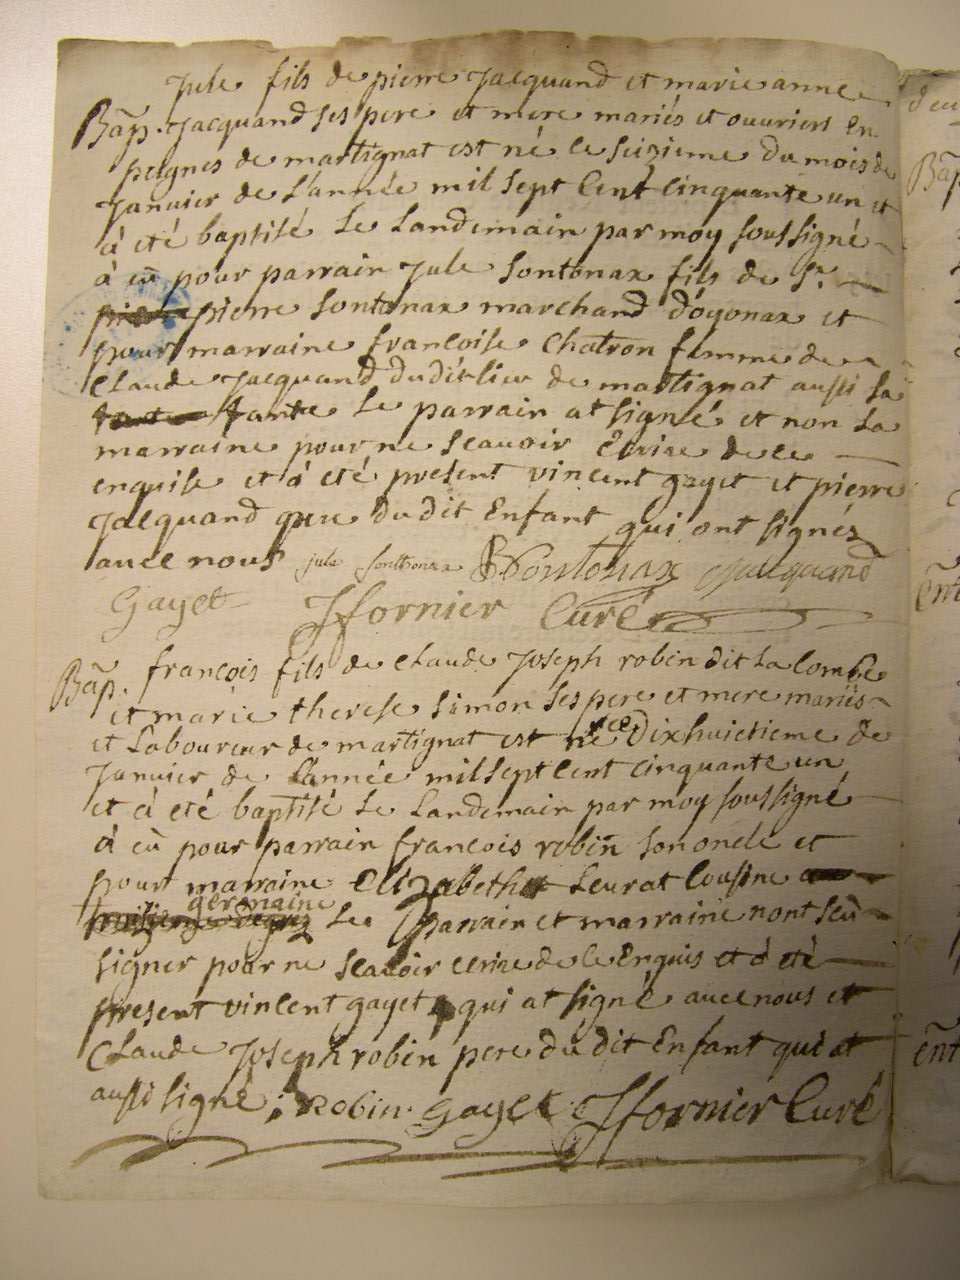 Jule fils de pierre Jacquand et marie anne
Bãp. Jacquand ses pere et mere mariés et ouuriers En
peignes de martignat est né le seizieme du mois de
Januier de L'année mil sept Cent cinquante un et
à eté baptisé Le Landemain par moy soussigné
à eü pour parrain Jule Sontonax fils de Sr.
pierre Sontonax marchand d'oyonax et
pour marraine francoise Chatron femme de
Claude Jacquand dudit lieu de martignat aussi sa
tante Le parrain at signé et non La
marraine pour ne scauoir Ecrire de ce
enquise et à eté present vincent gayet et pierre
Jacquand pere du dit Enfant qui ont signéz
auec nous jule sonthonax Sontonax Jacquand
Gayet Jfornier Curé
Bãp. françois fils de Claude Joseph robin dit La Combe
et marie therese Simon ses pere et mere mariés
et Laboureur de martignat est né ce Dixhuictieme de
Januier de L'année mil sept Cent cinquante un
et à eté baptisé Le Landemain par moy soussigné
à eü pour parrain francois robin son oncle et
pour marraine Elizabeth Leurat Cousine
germaine
Le parrain et marraine nont sëu
signer pour ne scauoir ecrire de ce Enquis et à eté
present vincent gayet qui at signé auec nous et
Claude Joseph robin pere du dit Enfant qui at
aussi signé; Robin. Gayet Jfornier Curé
d'eu
Bãp
Ent
ent